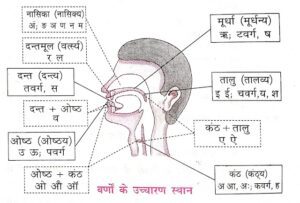 नासिका (नासिक्य)
अं; ङ ञ ण न म
दन्तमूल (वर्त्स्य)
र ल
दन्त (दन्त्य)
तवर्ग, स
दन्त + ओष्ठ
व
ओष्ठ (ओष्ठ्य)
उ ऊ; पवर्ग
ओष्ठ + कंठ
ओ औ ऑ
मूर्धा (मूर्धन्य)
ऋ; टवर्ग, ष
तालु (तालव्य)
इ ई; चवर्ग,य, श
कंठ + तालु
ए ऐ
कंठ (कंठ्य)
अ आ, अः; कवर्ग, ह
वर्णों के उच्चारण स्थान